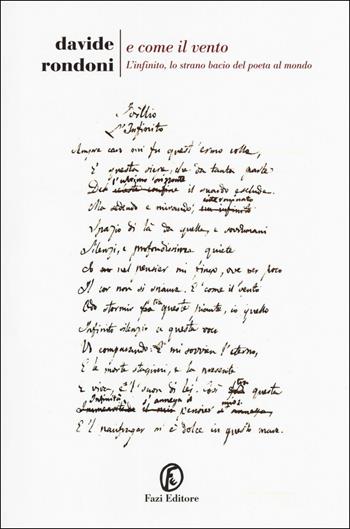 davide
rondoni
e come il vento
L'infinito, lo strano bacio del poeta al mondo
Idillio
L'Infinito
Sempre caro mi fu quest'ermo colle,
E questa siepe, che da tanta parte
l'ultimo orizzonte
De celeste confine il guardo esclude.
interminato
Ma sedendo e mirando, un infinito
Spazio di là da quella, e sovrumani
Silenzi, e profondissima quiete
Io nel pensier mi fingo, ove per poco
Il cor non si spaura. E come il vento
Odo stormir fra queste piante, io quello
Infinito silenzio a questa voce
Vo comparando: E mi sovvien l'eterno,
E le morte stagioni, e la presente
E viva, e 'l suon di lei. Così fra questa
Infinità s'annega il mio
Immensitade il mio pensier s'annega,
E 'l naufragar m'è dolce in questo mare.
Fe
Fazi Editore